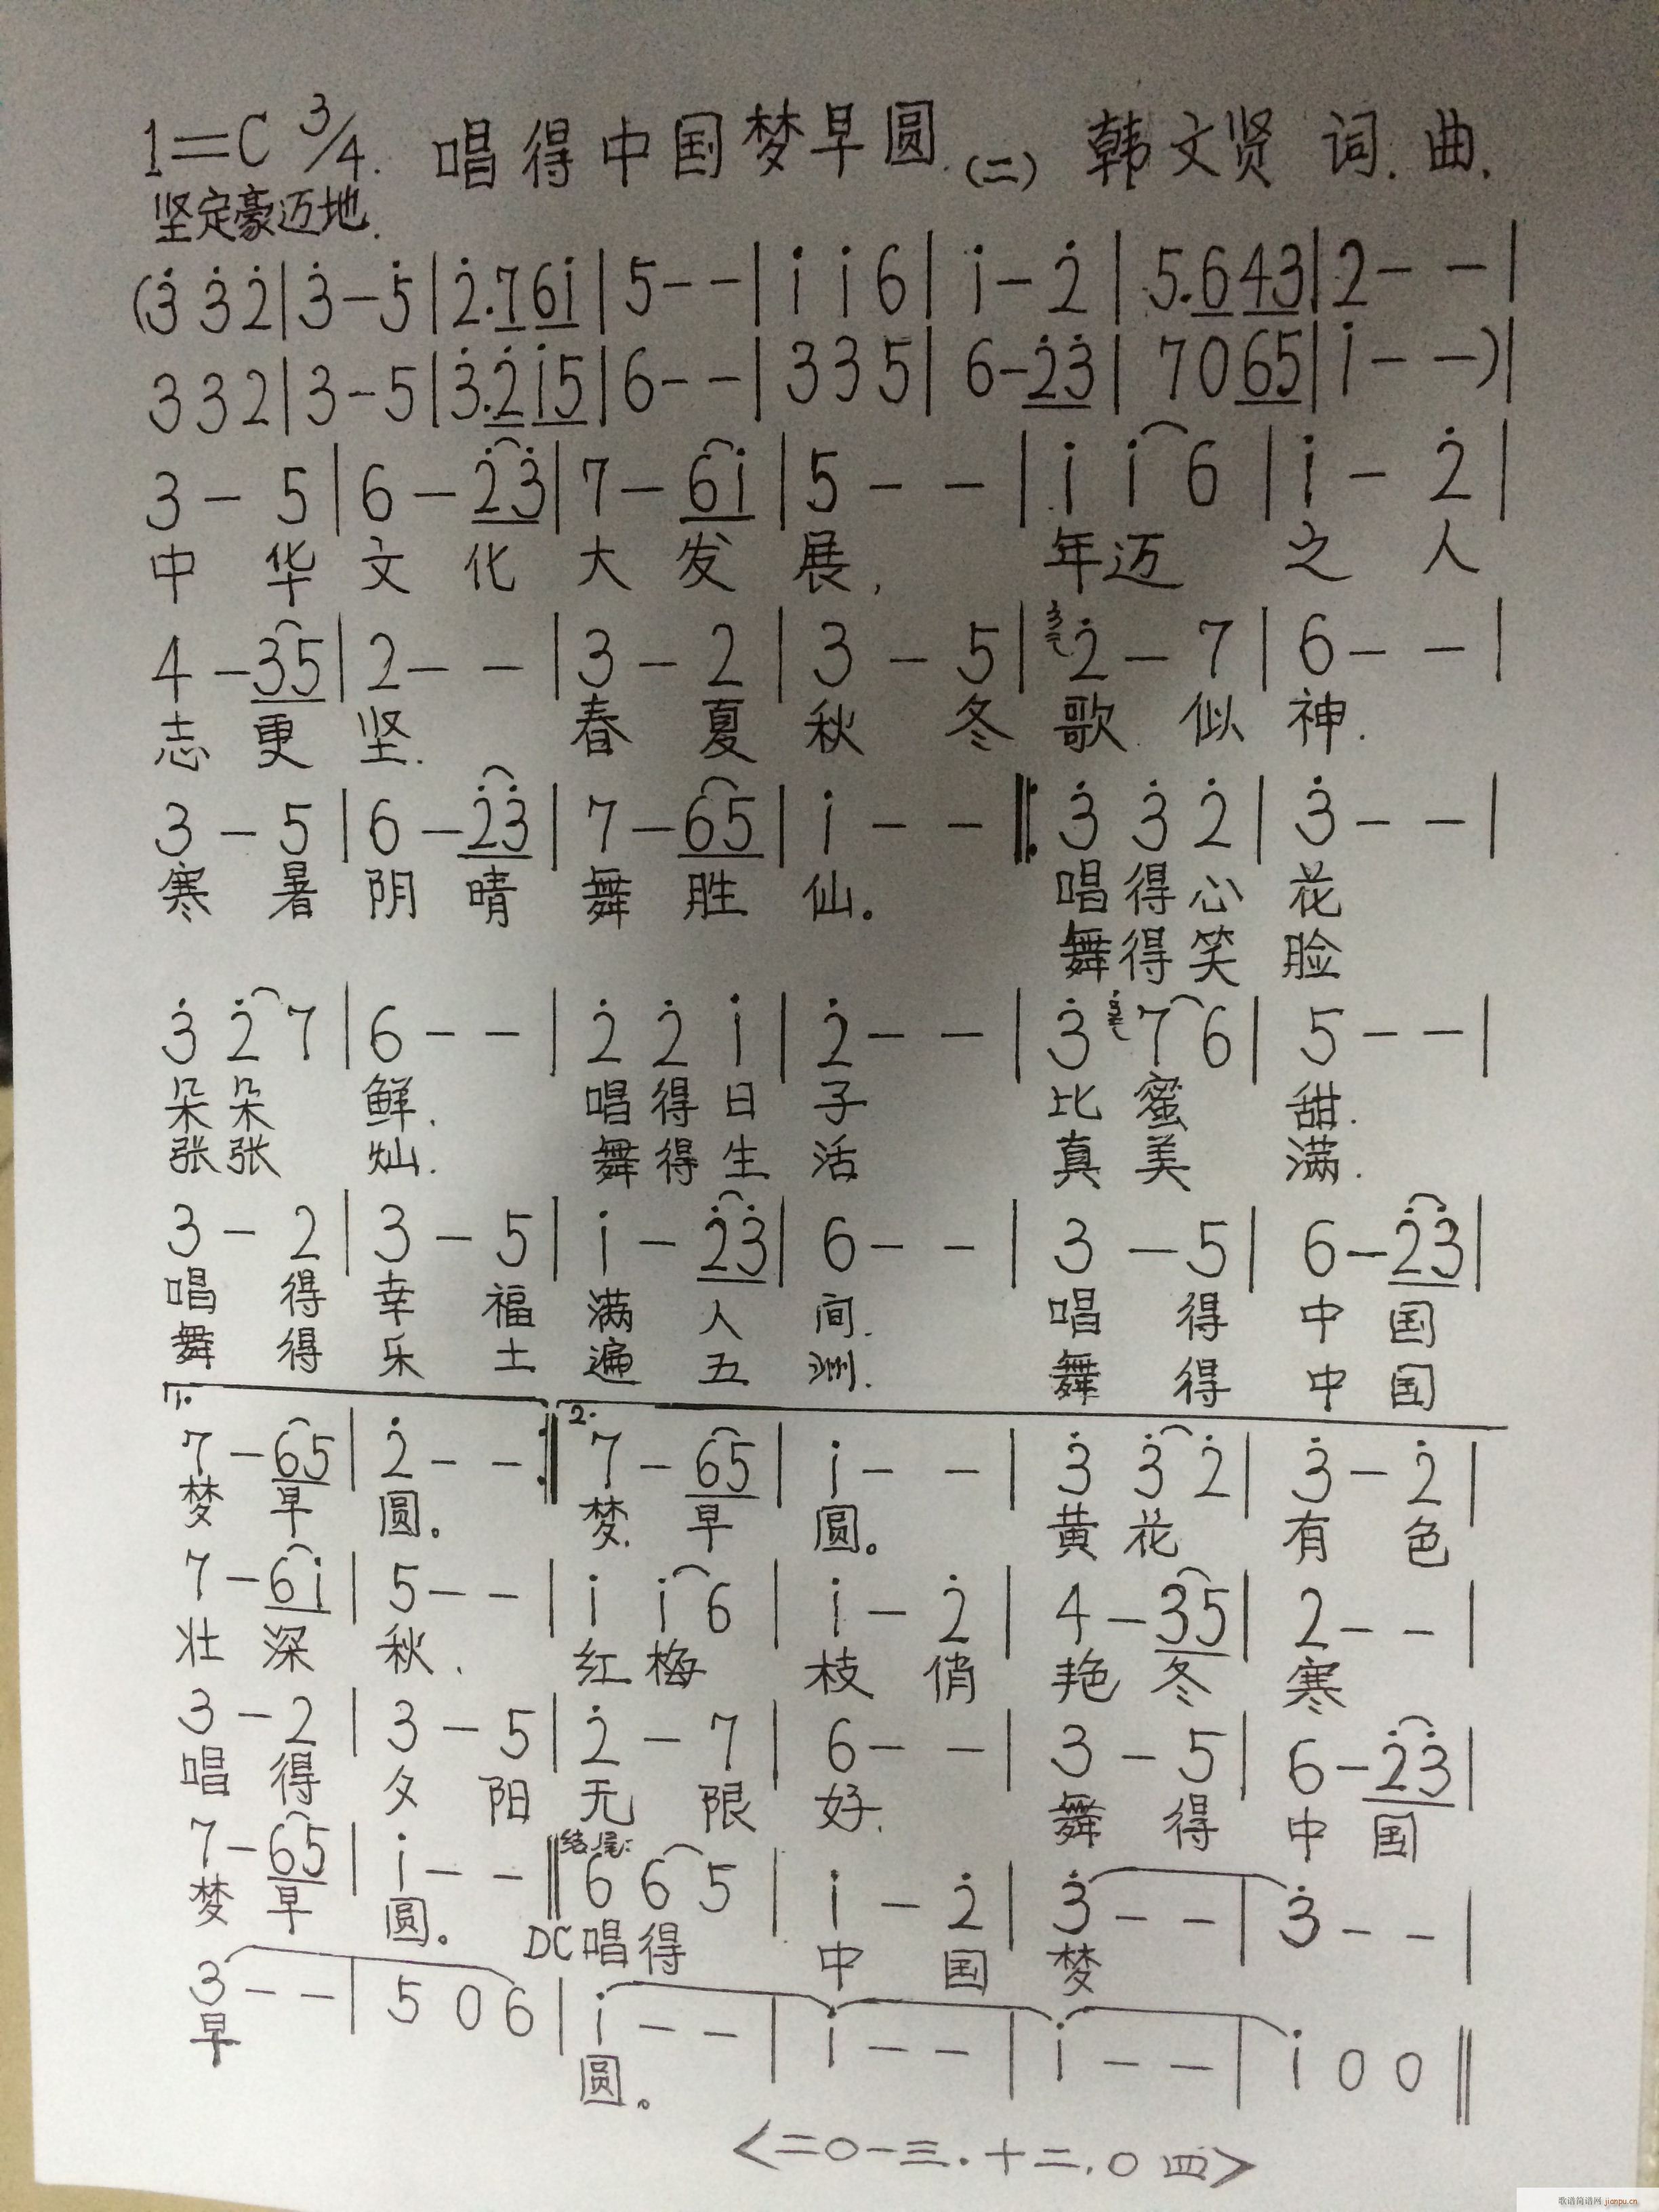 1=C 3/4. 唱得中国梦早圆.(二) 韩文贤 词.曲.
坚定豪迈地.
(3̇ 3̇ 2̇|3̇ - 5̇|2̇. 7 6 i|5 - -|i i 6|i - 2̇|5. 6 4 3|2 - -|
3 3 2|3 - 5|3̇. 2̇ i 5|6 - -|3 3 5|6 - 2̇ 3̇|7 0 6 5|i - -)|
3 - 5|6 - 2̇ 3̇|7 - 6 i|5 - -|i i 6|i - 2̇|
中 华 文 化 大 发 展, 年 迈 之 人
4 - 3 5|2 - -|3 - 2|3 - 5|3 2̇ - 7|6 - -|
志 更 坚. 春 夏 秋 冬 歌 似 神.
3 - 5|6 - 2̇ 3̇|7 - 6 5|i - -‖: 3̇ 3̇ 2̇|3̇ - -|
寒 暑 阴 晴 舞 胜 仙。 唱 得 心 花
舞 得 笑 脸
3̇ 2̇ 7|6 - -|2̇ 2̇ i|2̇ - -|3̇ 7 6|5 - -|
朵 朵 鲜. 唱 得 日 子 比 蜜 甜.
张 张 灿. 舞 得 生 活 真 美 满.
3 - 2|3 - 5|i - 2̇ 3̇|6 - -|3 - 5|6 - 2̇ 3̇|
唱 得 幸 福 满 人 间. 唱 得 中 国
舞 得 乐 土 遍 五 洲. 舞 得 中 国
1. 7 - 6 5|2̇ - - :‖ 2. 7 - 6 5|i - -|3̇ 3̇ 2̇|3̇ - 2̇|
梦 早 圆。 梦. 早 圆。 黄 花 有 色
7 - 6 i|5 - -|i i 6|i - 2̇|4 - 3 5|2 - -|
壮 深 秋. 红 梅 枝 俏 艳 冬 寒
3 - 2|3 - 5|2̇ - 7|6 - -|3 - 5|6 - 2̇ 3̇|
唱 得 夕 阳 无 限 好. 舞 得 中 国
7 - 6 5|i - -‖ 结尾: 6 6 5|i - 2̇|3̇ - -|3̇ - -|
梦 早 圆。 DC 唱 得 中 国 梦
3 - -|5 0 6|i - -|i - -|i - -|i 0 0‖
早 圆。
<二〇一三.十二.〇四>
歌谱简谱网 jianpu.cn